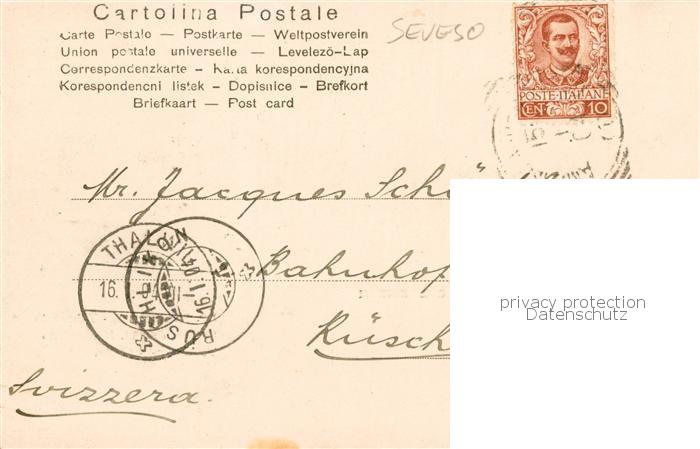 Cartolina Postale
Carte Postale — Postkarte — Weltpostverein
Union postale universelle — Levelezö-Lap
Correspondenzkarte - Karta korespondencyjna
Korespondencni listek - Dopisnice - Brefkort
Briefkaart — Post card
SEVESO
POSTE·ITALIANE
CEN. 10
Mr. Jacques
THALWIL
16.
Bahnhof
RÜS
Svizzera.
privacy protection
Datenschutz